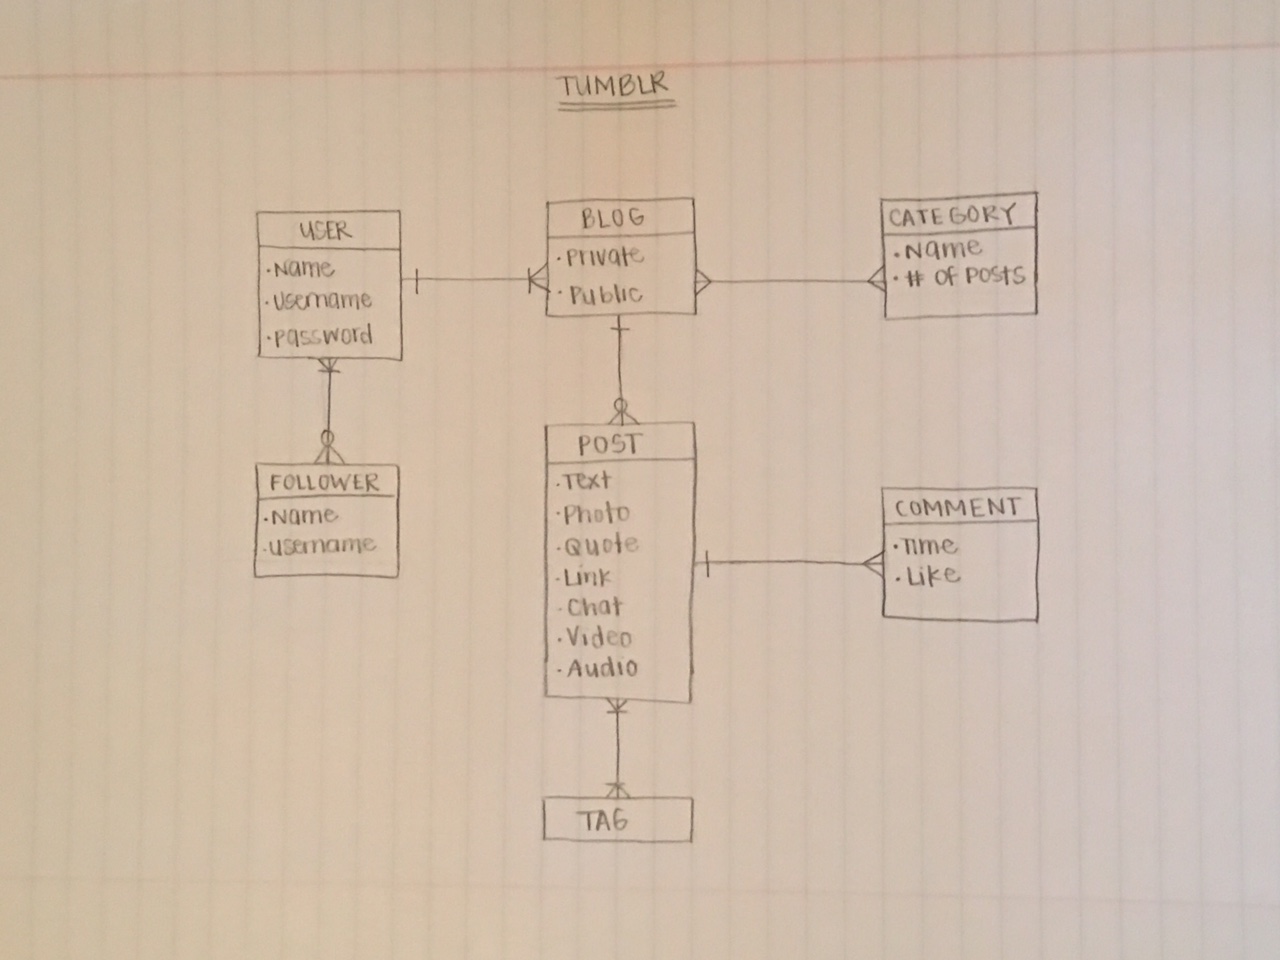 TUMBLR
USER
·Name
·Username
·Password
BLOG
·Private
·Public
CATEGORY
·Name
·# OF POSTS
FOLLOWER
·Name
·username
POST
·Text
·Photo
·Quote
·Link
·Chat
·Video
·Audio
COMMENT
·Time
·Like
TAG